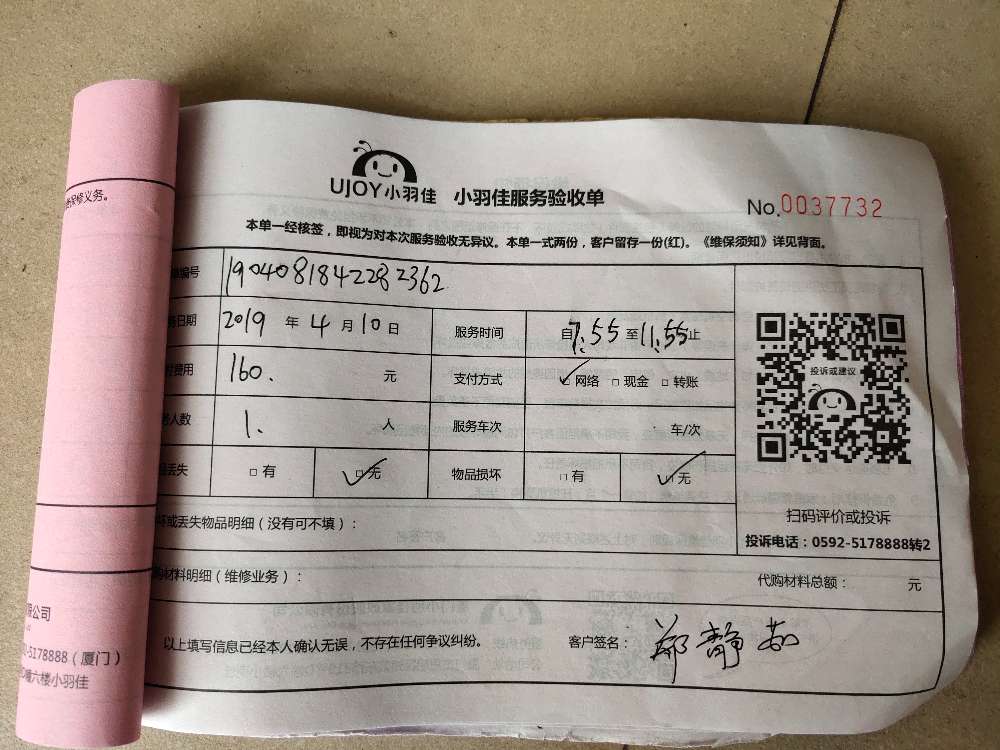 保修义务。
UJOY小羽佳 小羽佳服务验收单
No.0037732
本单一经核签，即视为对本次服务验收无异议。本单一式两份，客户留存一份(红)。《维保须知》详见背面。
编号 1904081842282362
日期 2019 年 4 月 10 日 服务时间 自7:55至11:55止
费用 160. 元 支付方式 ☑网络 □现金 □转账
人数 1. 人 服务车次 车/次
丢失 □有 ☑无 物品损坏 □有 ☑无
投诉或建议
扫码评价或投诉
投诉电话：0592-5178888转2
或丢失物品明细（没有可不填）：
材料明细（维修业务）： 代购材料总额： 元
以上填写信息已经本人确认无误，不存在任何争议纠纷。 客户签名： 郑静茹
公司
-5178888（厦门）
六楼小羽佳